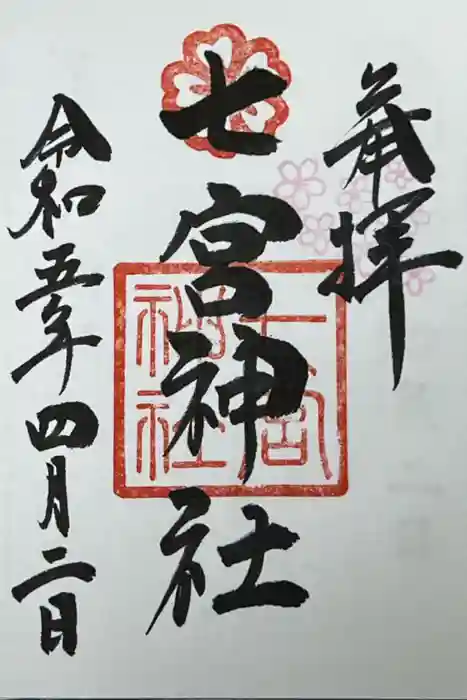 奉拝
七宮神社
七宮神社
令和五年四月二日